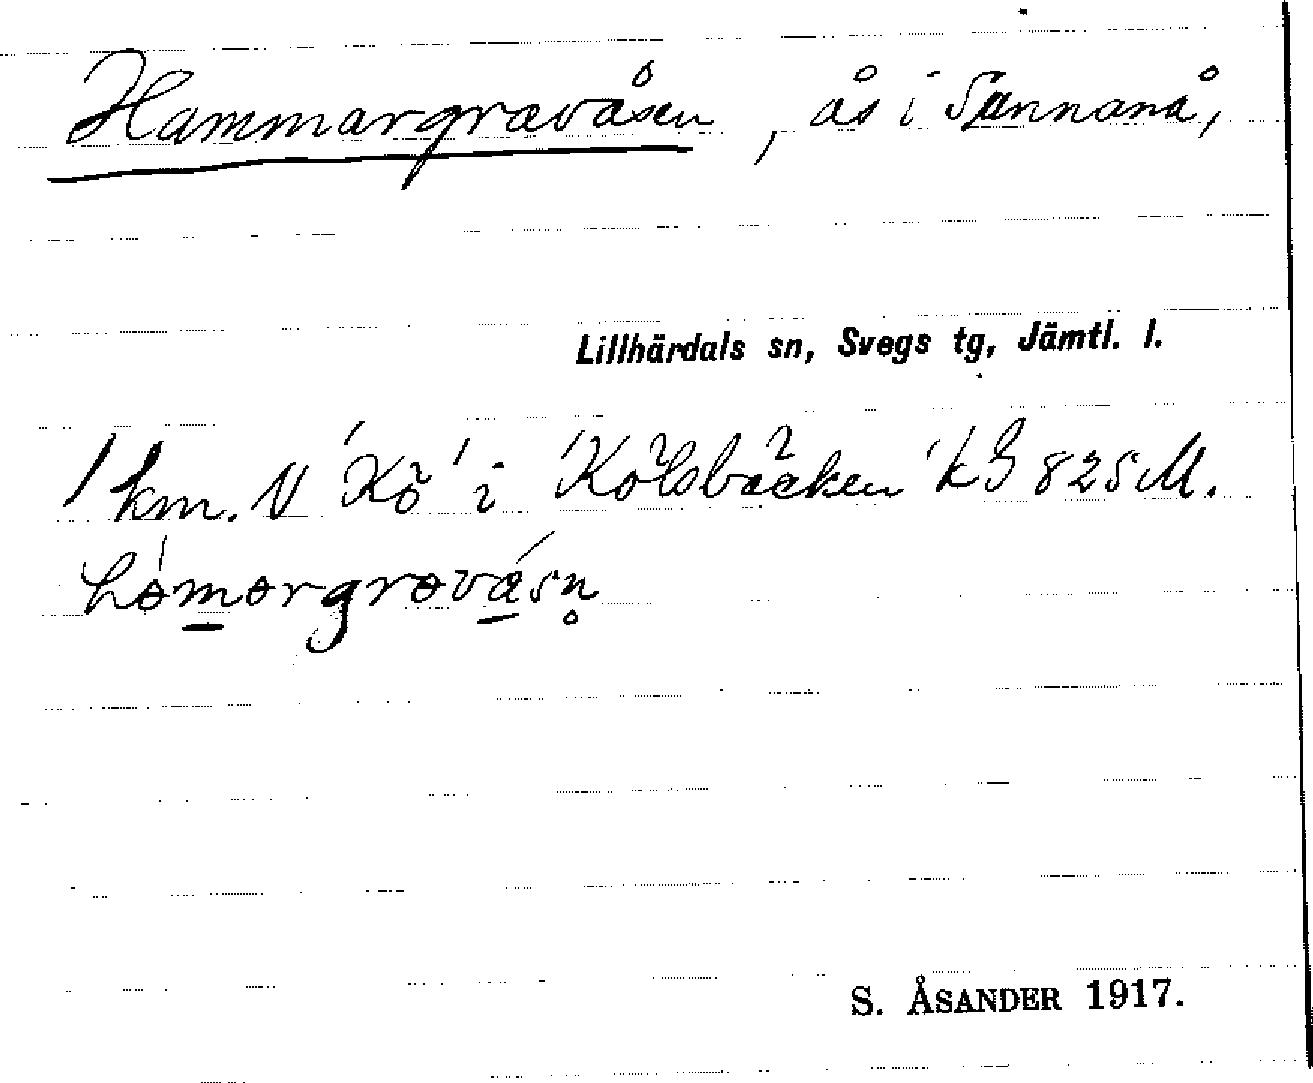 Hammargravåsen, ås i Sännanå,
Lillhärdals sn, Svegs tg, Jämtl. l.
1 km. V 'Kö' i 'Kölsbäcken' kG 825 M.
hámorgrovásn̥
S. ÅSANDER 1917.